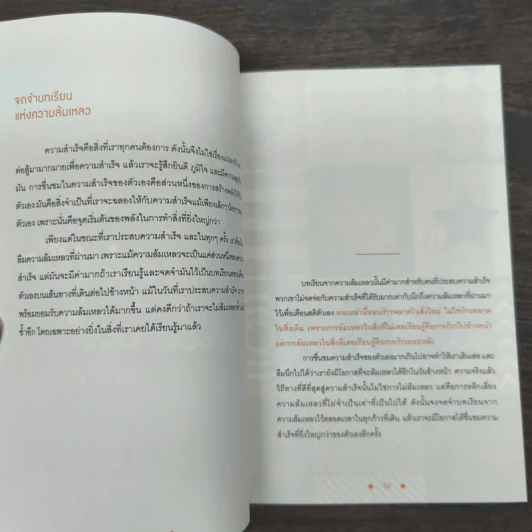 จดจำบทเรียน
แห่งความล้มเหลว
ความสำเร็จคือสิ่งที่เราทุกคนต้องการ ดังนั้นจึงไม่ใช่เรื่อง
ต่อสู้มามากมายเพื่อความสำเร็จ แล้วเราจะรู้สึกยินดี ภูมิใจ และมีความสุขกับ
มัน การชื่นชมในความสำเร็จของตัวเองคือส่วนหนึ่งของการสร้างพลังให้กับ
ตัวเอง มันคือสิ่งจำเป็นที่เราจะฉลองให้กับความสำเร็จแม้เพียงเล็กๆ
ตัวเอง เพราะนั่นคือจุดเริ่มต้นของพลังในการทำสิ่งที่ยิ่งใหญ่กว่า
เพียงแต่ในขณะที่เราประสบความสำเร็จ และในทุกๆ ครั้ง
ลืมความล้มเหลวที่ผ่านมา เพราะแม้ความล้มเหลวจะเป็นแค่ส่วนหนึ่งของ
สำเร็จ แต่มันจะมีค่ามากถ้าเราเรียนรู้และจดจำมันไว้เป็นบทเรียนสอน
ตัวเองบนเส้นทางที่เดินต่อไปข้างหน้า แม้ในวันที่เราประสบความสำเร็จ
พร้อมยอมรับความล้มเหลวได้มากขึ้น แต่คงดีกว่าถ้าเราจะไม่ล้มเหลว
ซ้ำอีก โดยเฉพาะอย่างยิ่งในสิ่งที่เราเคยได้เรียนรู้มาแล้ว
บทเรียนจากความล้มเหลวนั้นมีค่ามากสำหรับคนที่ประสบความสำเร็จ
พวกเขาไม่จดจ่อกับความสำเร็จที่ได้รับมากเท่ากับนึกถึงความล้มเหลวที่ผ่านมา
ไว้เพื่อเตือนสติตัวเอง คนเหล่านี้ชอบก้าวพลาดในสิ่งใหม่ ไม่ใช่ก้าวพลาด
ในสิ่งเดิม เพราะการล้มเหลวในสิ่งที่ไม่เคยเรียนรู้คือการก้าวไปข้างหน้า
แต่การล้มเหลวในสิ่งที่เคยเรียนรู้คือการก้าวถอยหลัง
การชื่นชมความสำเร็จของตัวเองมากเกินไปอาจทำให้เราเดินเล่น และ
ลืมนึกไปได้ว่าเรายังมีโอกาสที่จะล้มเหลวได้อีกในวันข้างหน้า ความจริงแล้ว
วิธีทางที่ดีที่สุดสู่ความสำเร็จนั้นไม่ใช่การไม่ล้มเหลว แต่คือการหลีกเลี่ยง
ความล้มเหลวที่ไม่จำเป็นเท่าที่เป็นไปได้ ดังนั้นจงจดจำบทเรียนจาก
ความล้มเหลวไว้ตลอดเวลาในทุกก้าวที่เดิน แล้วเราจะมีโอกาสได้ชื่นชมความ
สำเร็จที่ยิ่งใหญ่กว่าของตัวเองอีกครั้ง